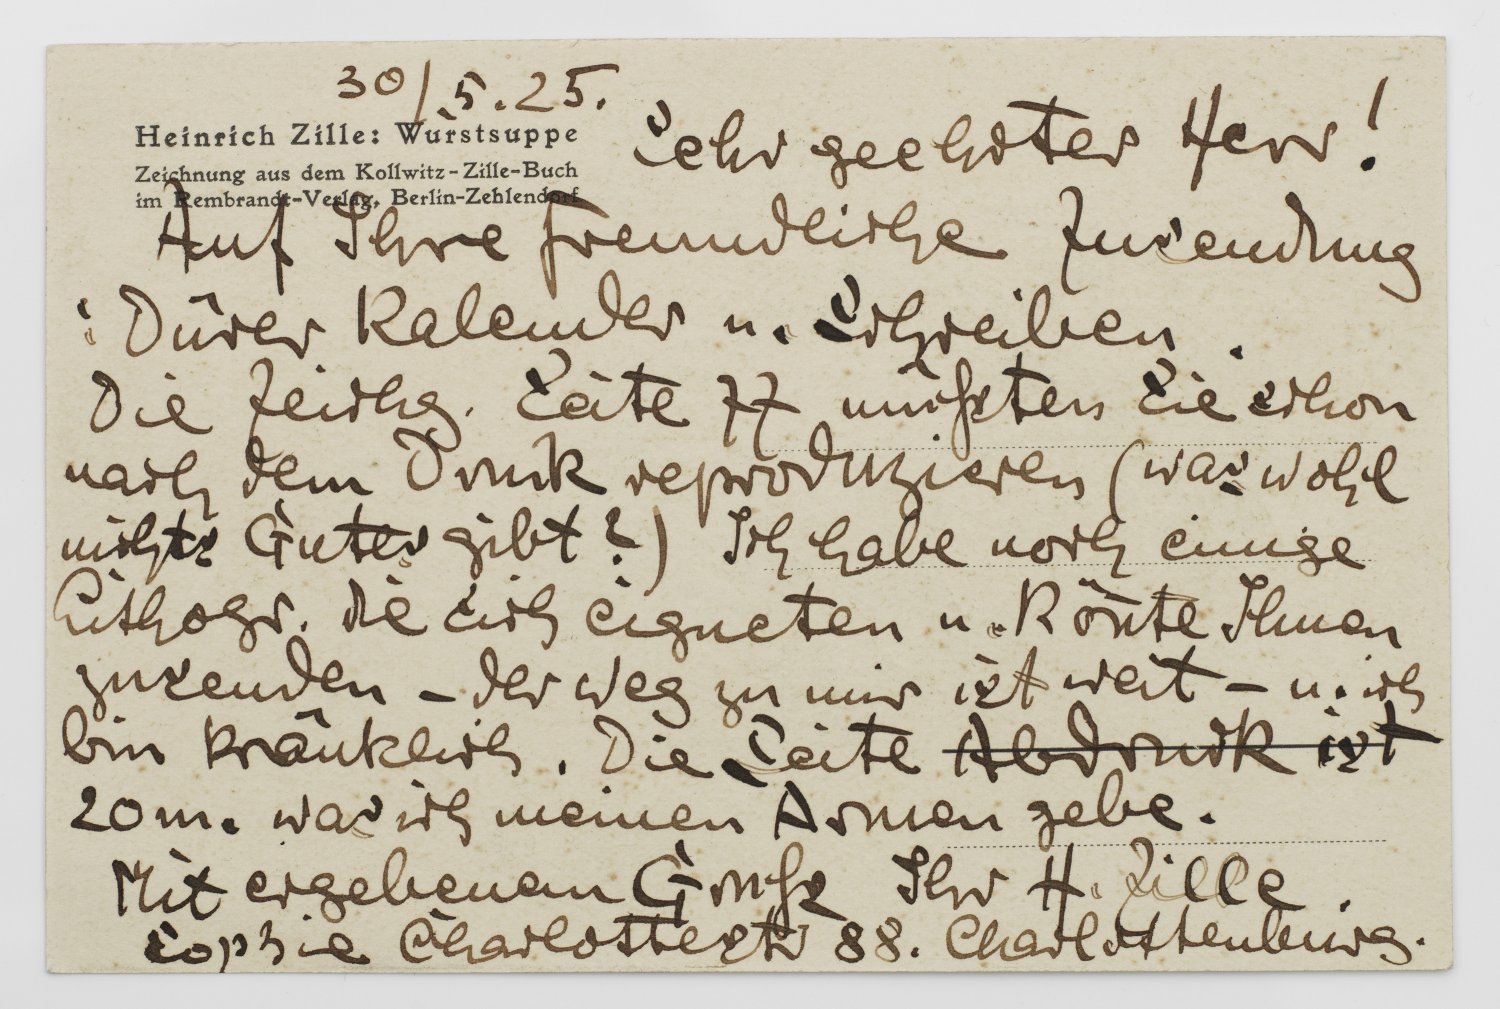 30/.5.25.
Heinrich Zille: Wurstsuppe
Zeichnung aus dem Kollwitz-Zille-Buch
im Rembrandt-Verlag, Berlin-Zehlendorf
Sehr geehrter Herr!
Auf Ihre freundliche Zusendung
: Dürer Kalender u. Schreiben.
Die Zeichg. Seite 77 müßten Sie schon
nach dem Druck reproduzieren (was wohl
nichts Gutes gibt?) Ich habe noch einige
Lithogr. die sich eigneten u. könte Ihnen
zusenden – der Weg zu mir ist weit – u. ich
bin kränklich. Die Seite Abdruck ist
20 m. was ich meinen Armen gebe.
Mit ergebenem Gruße Ihr H. Zille.
Sophie Charlottestr 88. Charlottenburg.